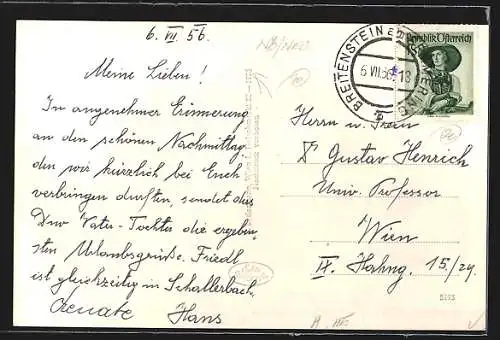 6. VII. 56.
Meine Lieben!
In angenehmer Erinnerung
an den schönen Nachmittag
den wir kürzlich bei Euch
verbringen durften, sendet das
Duo Vater-Tochter die ergeben-
sten Urlaubsgrüße. Friedl
ist gleichzeitig in Schallerbach.
Renate Hans
BREITENSTEIN a. SEMMERING
6. VII. 56 - 18
Republik Österreich
Herrn u. Frau
Dr Gustav Henrich
Univ. Professor
Wien
IX. 15/29.
5293